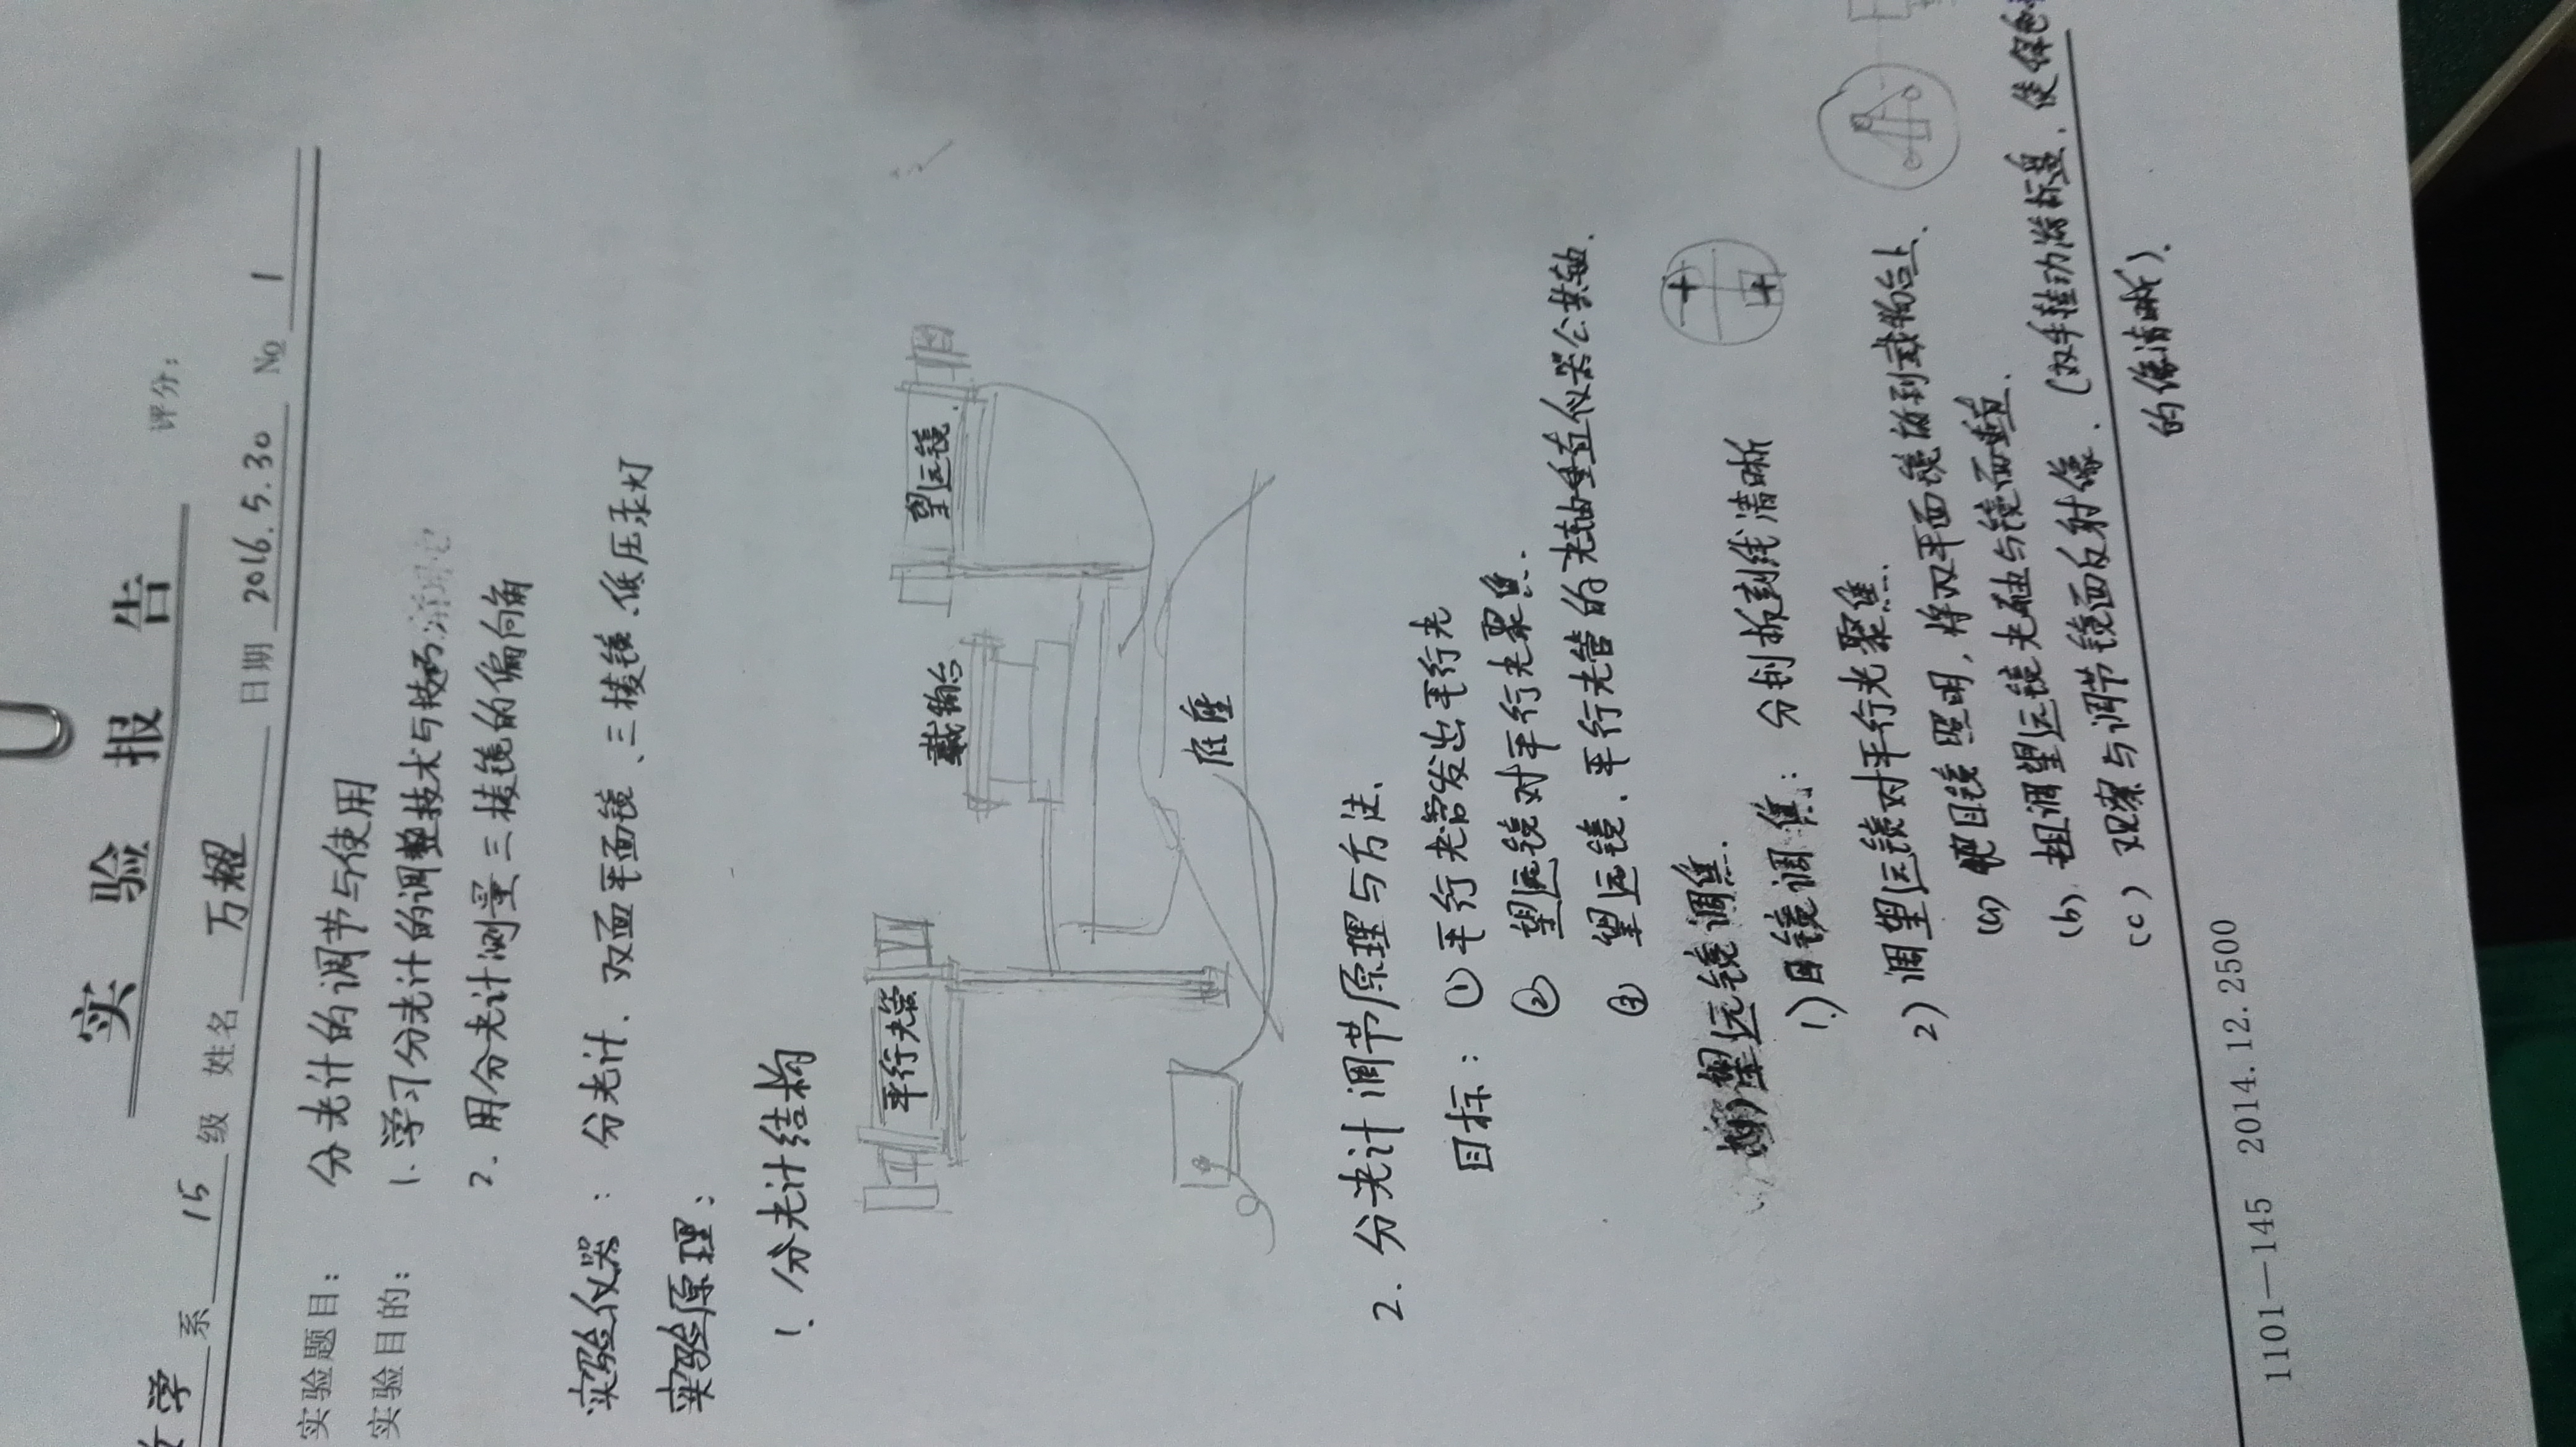 实 验 报 告
评分：
学 系 15 级 姓名 万耀 日期 2016.5.30 No 1
实验题目： 分光计的调节与使用
实验目的： 1. 学习分光计的调整技术与技巧
2. 用分光计测量三棱镜的偏向角
实验仪器： 分光计、双面平面镜、三棱镜、低压汞灯
实验原理：
1. 分光计结构
平行光管 载物台 望远镜
底座
2. 分光计调节原理与方法.
目标： ① 平行光管发出平行光
② 望远镜对平行光聚焦.
③ 望远镜、平行光管的光轴垂直仪器公共轴.
望远镜调焦.
1) 目镜调焦： 分划板刻线清晰
2) 调望远镜对平行光聚焦.
(a) 把目镜照明, 将双平面镜放到载物台上.
(b) 粗调望远镜光轴与镜面垂直.
(c) 观察与调节镜面反射像. (双手推动游标盘, 使
的像清晰).
1101—145 2014.12.2500